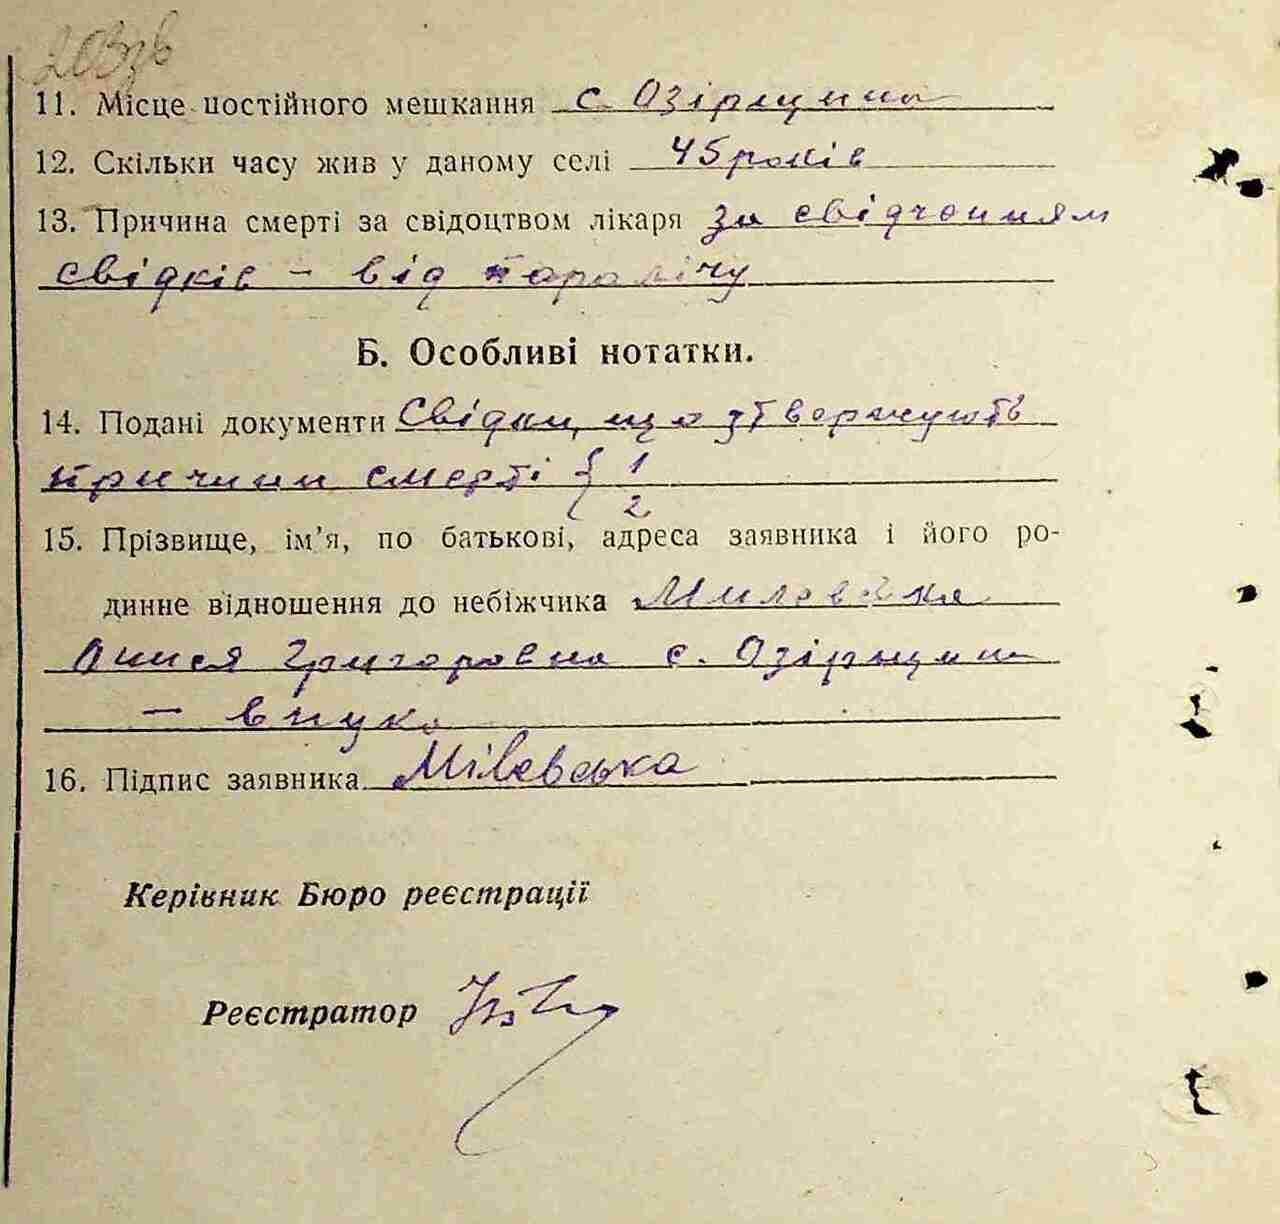 203зв
11. Місце постійного мешкання с Озірщина
12. Скільки часу жив у даному селі 45 років
13. Причина смерті за свідоцтвом лікаря за свідченням
свідків – від паралічу
Б. Особливі нотатки.
14. Подані документи Свідки, що зтверджують
причини смерті { 1
2
15. Прізвище, ім'я, по батькові, адреса заявника і його ро-
динне відношення до небіжчика
Анися Григоровна с. Озірщина
– внука
16. Підпис заявника Мілевська
Керівник Бюро реєстрації
Реєстратор